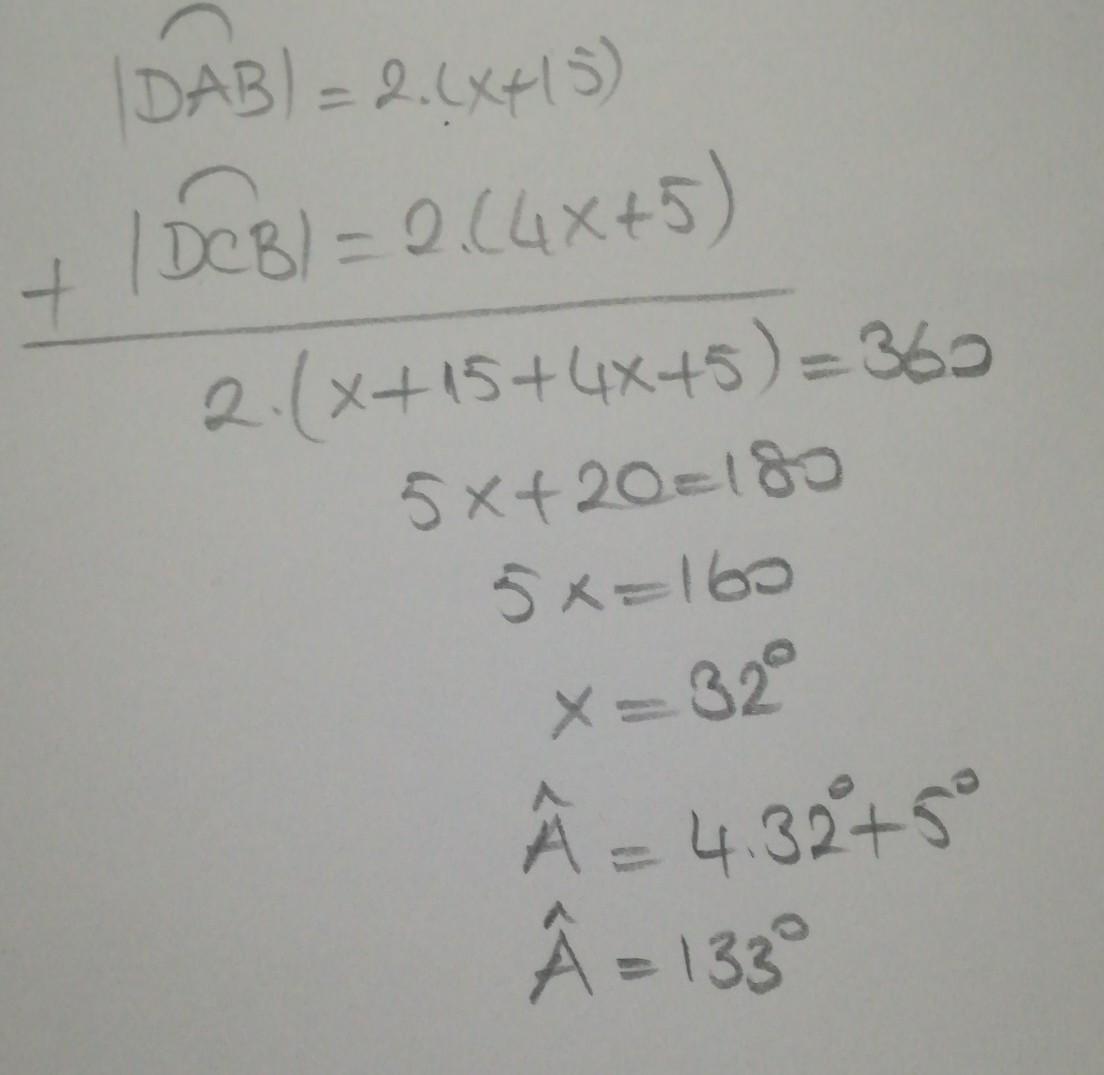 |DAB| = 2.(x+15)
+ |DCB| = 2.(4x+5)
2.(x+15+4x+5) = 360
5x+20=180
5x=160
x = 32°
Â = 4.32°+5°
Â = 133°